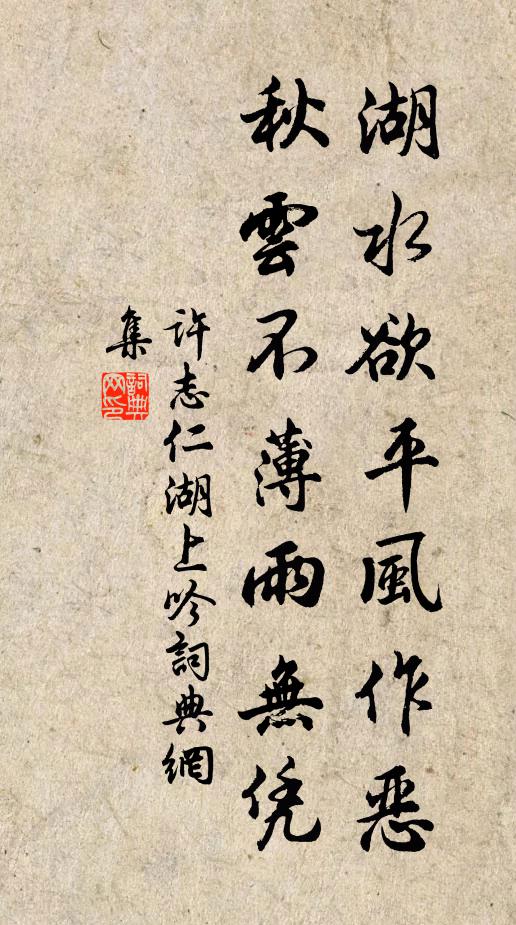 湖水欲平風作恶
秋雲不薄雨無凭
許志仁湖上吟詞典網
集
詞典
网印